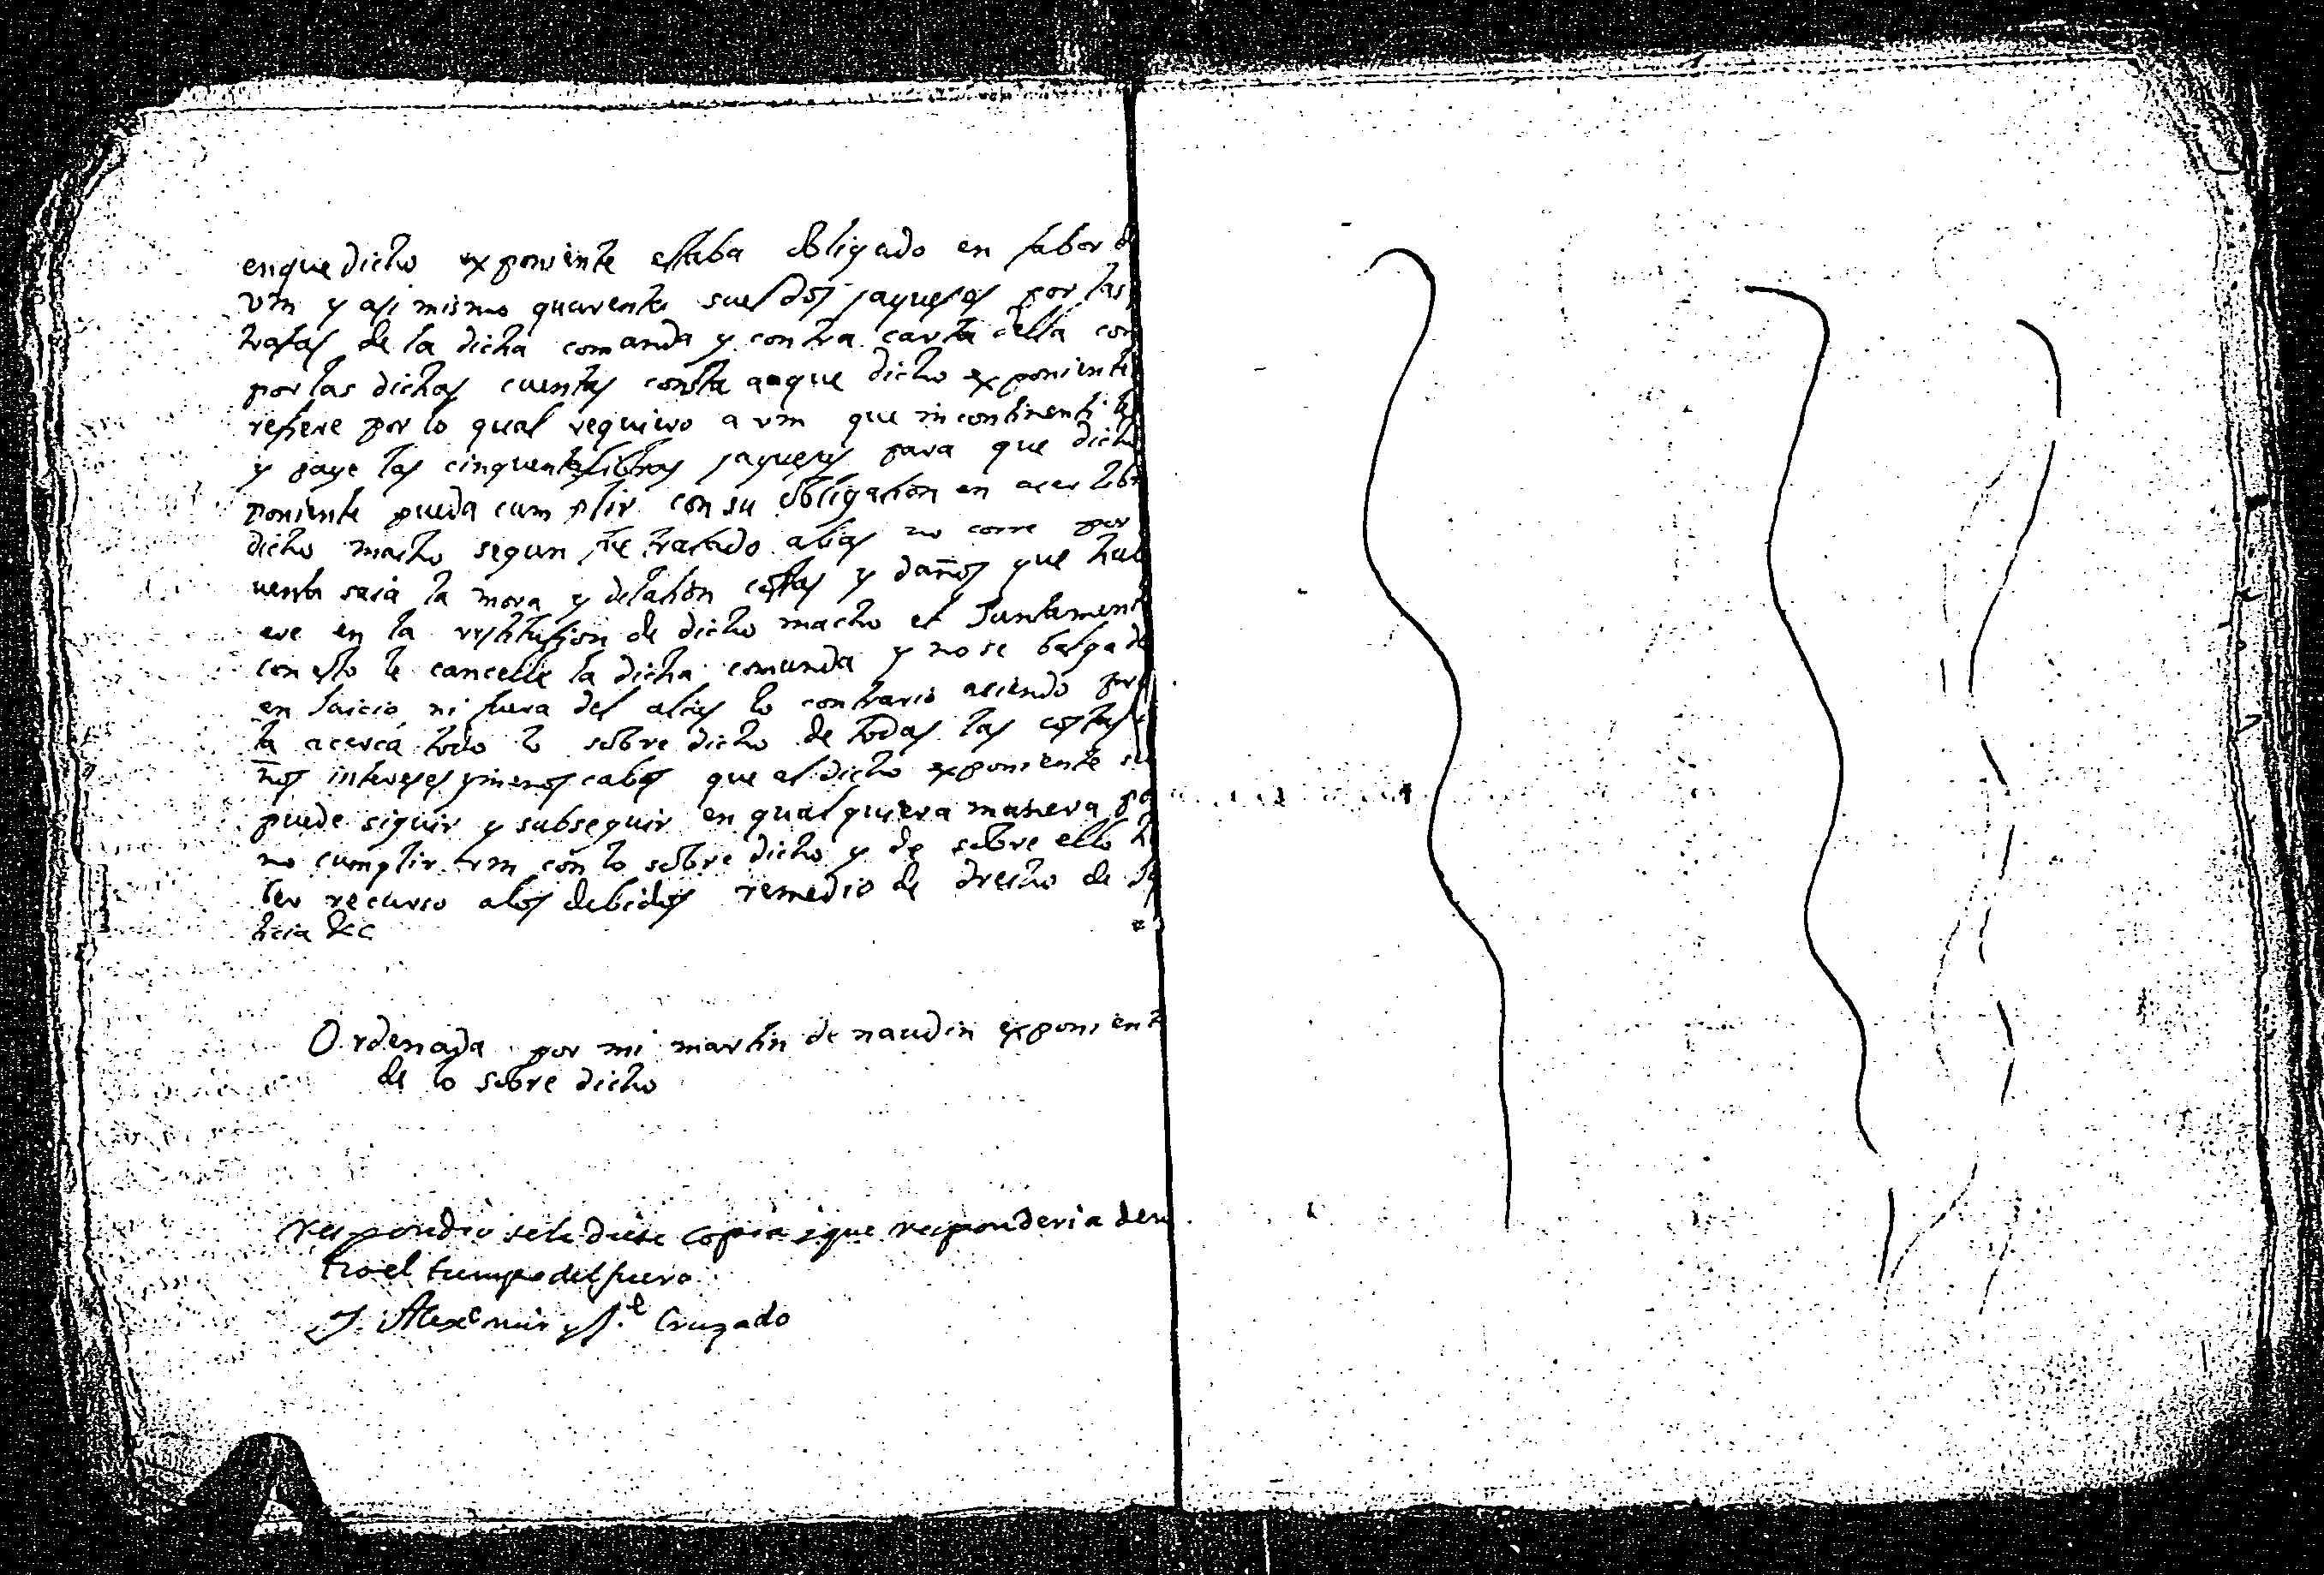 en que dicho exponiente estaba obligado en fabor de
vm y asi mismo quarenta sueldos jaqueses por las
de la dicha comanda y contra carta della con
por las dichas cuentas consta aoque dicho exponiente
refiere por lo qual requiero a vm que incontinenti le
y page las cinquenta libras jaquesas para que dicho
poniente pueda cumplir con su obligation en acer
dicho macho segun fue tratado alias no corre por
la mora y costas y daños que
ere en la restitusion de dicho macho et Juntament
con esto le cancelle la dicha comanda y no se balga de
en Juicio ni fuera del alias lo contrario aciendo
ta acerca todo lo sobre dicho de todas las costas
ños intereses y menos cabos que al dicho exponiente
puede siguir y subseguir en qual quiera manera
no cumplir vm con lo sobre dicho y de sobre ello
ber recurso a los debidos remedio de drecho de
ticia &c
Ordenada por mi martin de naudin exponient
de lo sobre dicho
respondio se le diese copia i que responderia den
tro el tiempo del fuero
Cruzado